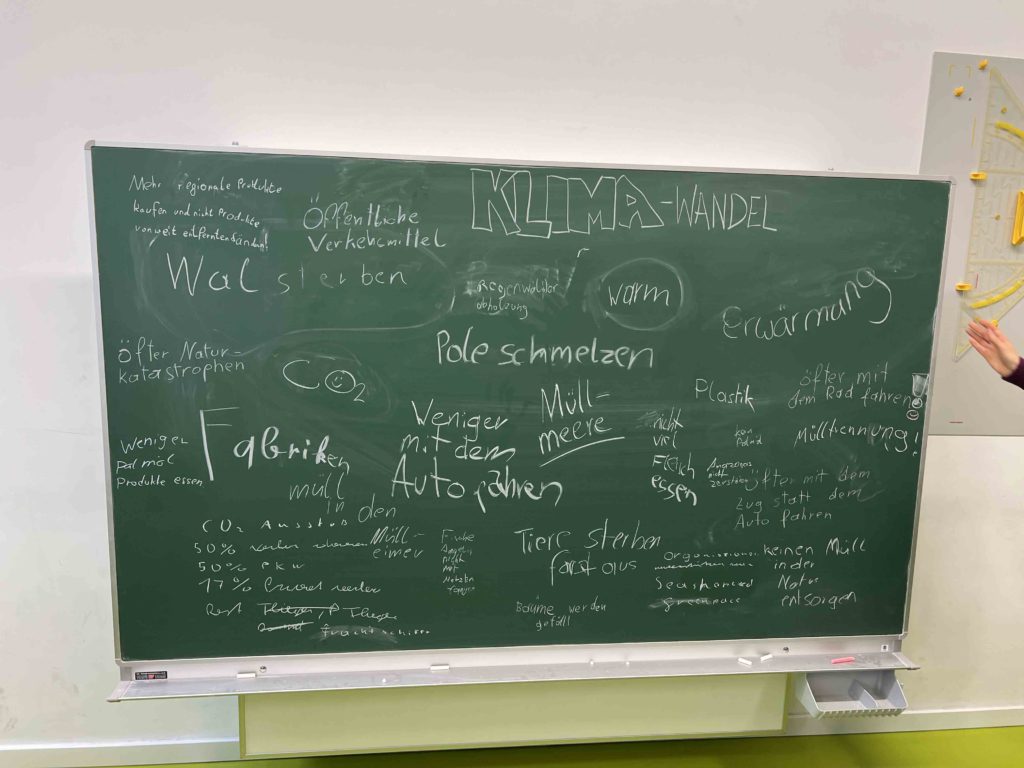 KLIMA-WANDEL
Mehr regionale Produkte
kaufen und nicht Produkte
von weit entfernten
Öffentliche
Verkehrsmittel
Wal sterben
Regenwälder
abholzung
warm
Erwärmung
Pole schmelzen
öfter Natur-
katastrophen
CO2
Fabriken
Weniger
mit dem
Auto fahren
Müll-
meere
Plastik
öfter mit
dem Rad fahren
Mülltrennung!
nicht
viel
Fleich
essen
nicht
zerstören
öfter mit dem
Zug statt dem
Auto fahren
Weniger
Palmöl
Produkte essen
müll
in den
Müll-
eimer
CO2 Ausstoß
50%
50% PKW
17%
Rest
Frachtschiffe
nicht
mit
fangen
Tiere sterben
fast aus
Bäume werden
gefällt
Seashepherd
Greenpeace
keinen Müll
in der
Natur
entsorgen